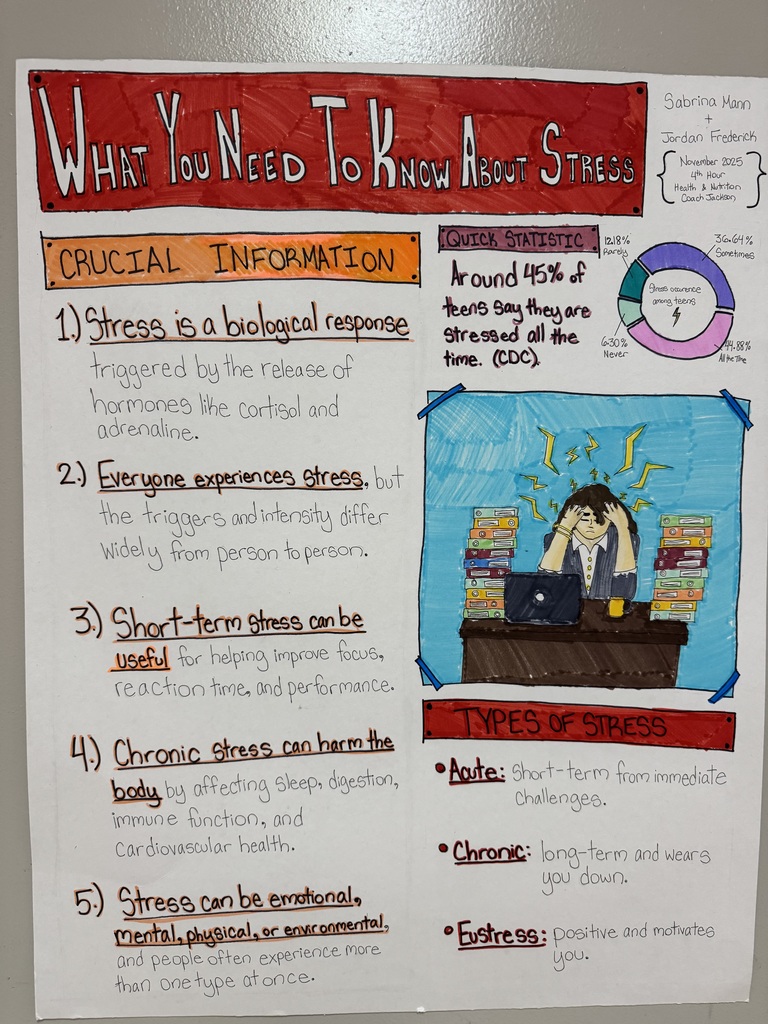 WHAT YOU NEED TO KNOW ABOUT STRESS
Sabrina Mann
+
Jordan Frederick
November 2025
4th Hour
Health & Nutrition
Coach Jackson
CRUCIAL INFORMATION
1.) Stress is a biological response
triggered by the release of
hormones like cortisol and
adrenaline.
2.) Everyone experiences stress, but
the triggers and intensity differ
widely from person to person.
3.) Short-term stress can be
useful for helping improve focus,
reaction time, and performance.
4.) Chronic stress can harm the
body by affecting sleep, digestion,
immune function, and
cardiovascular health.
5.) Stress can be emotional,
mental, physical, or environmental,
and people often experience more
than one type at once.
QUICK STATISTIC
Around 45% of
teens say they are
stressed all the
time. (CDC).
12.18%
Rarely
36.64%
Sometimes
Stress occurence
among teens
6.30%
Never
44.88%
All the Time
TYPES OF STRESS
• Acute: Short-term from immediate
challenges.
• Chronic: long-term and wears
you down.
• Eustress: positive and motivates
you.